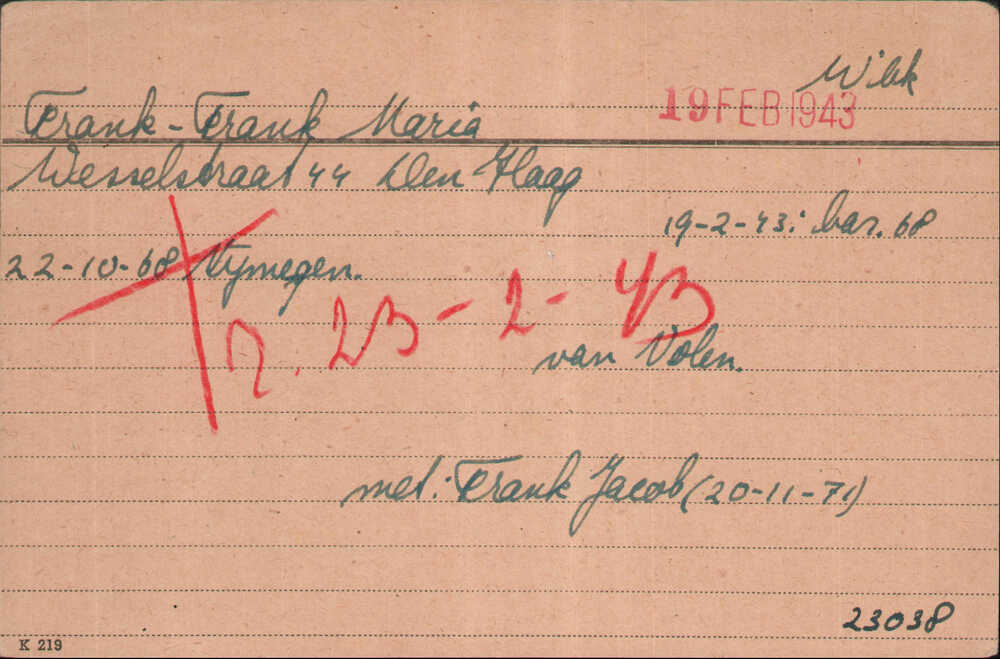 Wibk
19 FEB 1943
Frank-Frank Maria
Wesselstraat 44 Den Haag
19-2-43: bar. 68
22-10-68 Nymegen.
23-2-43
van Volen.
met: Frank Jacob (20-11-71)
23038
K 219